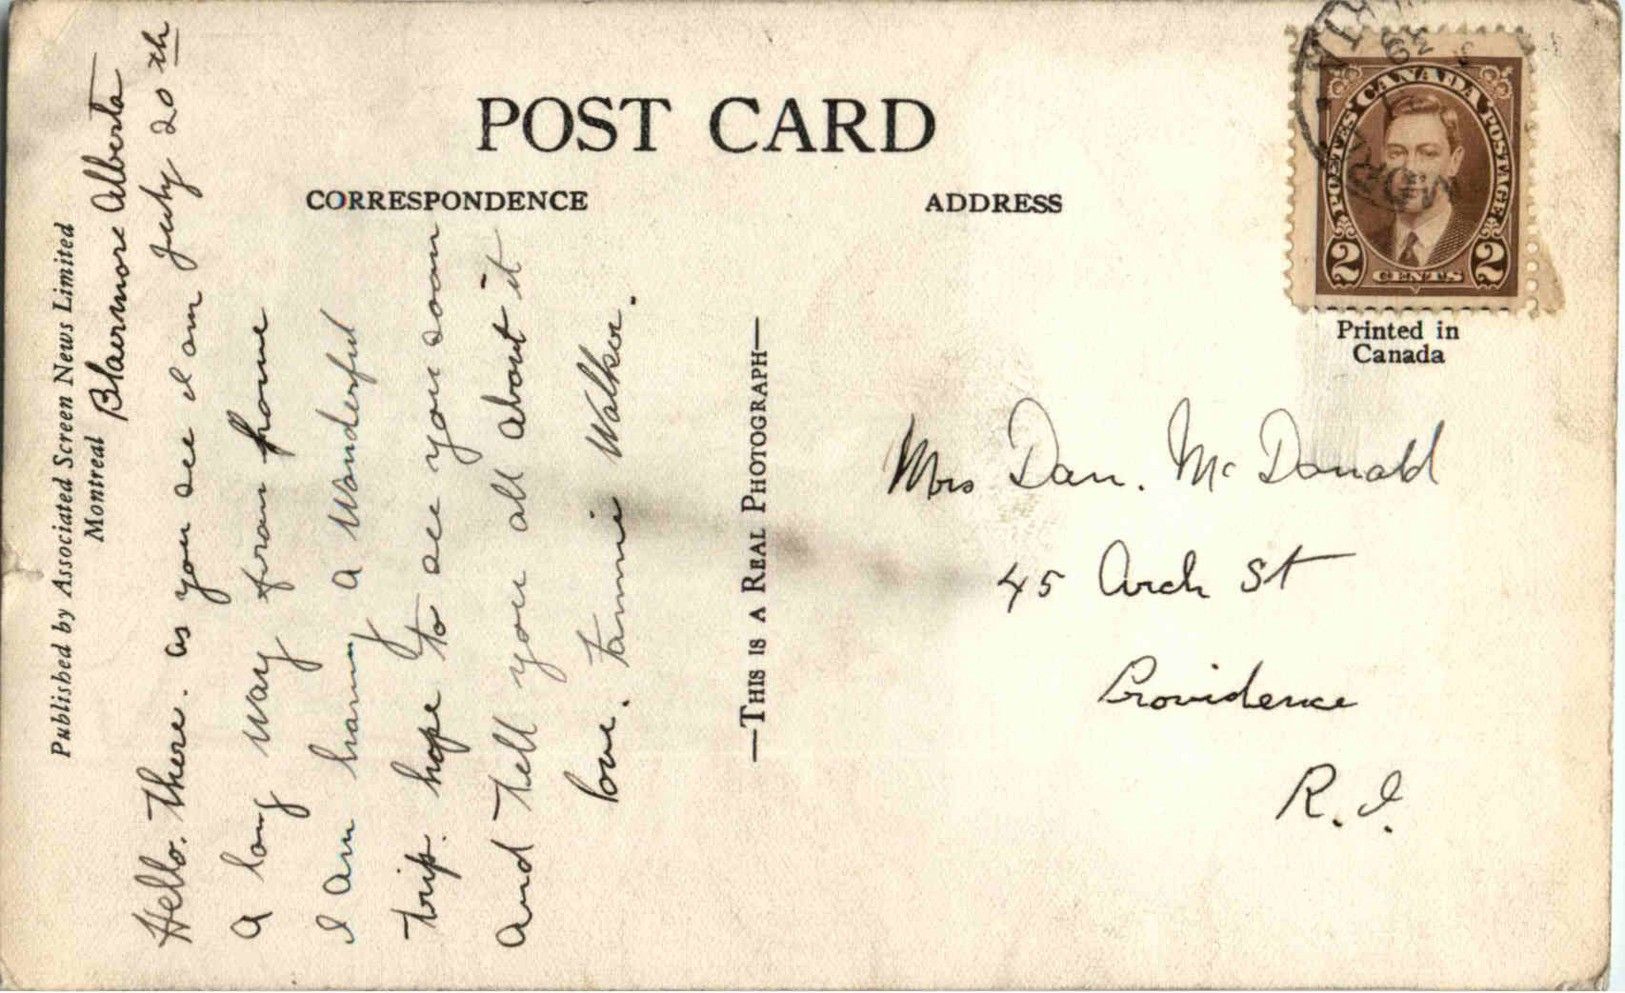 POST CARD
CORRESPONDENCE
ADDRESS
Published by Associated Screen News Limited
Montreal
Blairmore Alberta
July 20th
Hello. There. as you see I am
a long way from home
I am having a wonderful
trip. hope to see you soon
and tell you all about it
love. Tammie Walker.
—THIS IS A REAL PHOTOGRAPH—
POSTES CANADA POSTAGE
2 CENTS 2
Printed in
Canada
Mrs Dan. McDonald
45 Arch St
Providence
R.I.